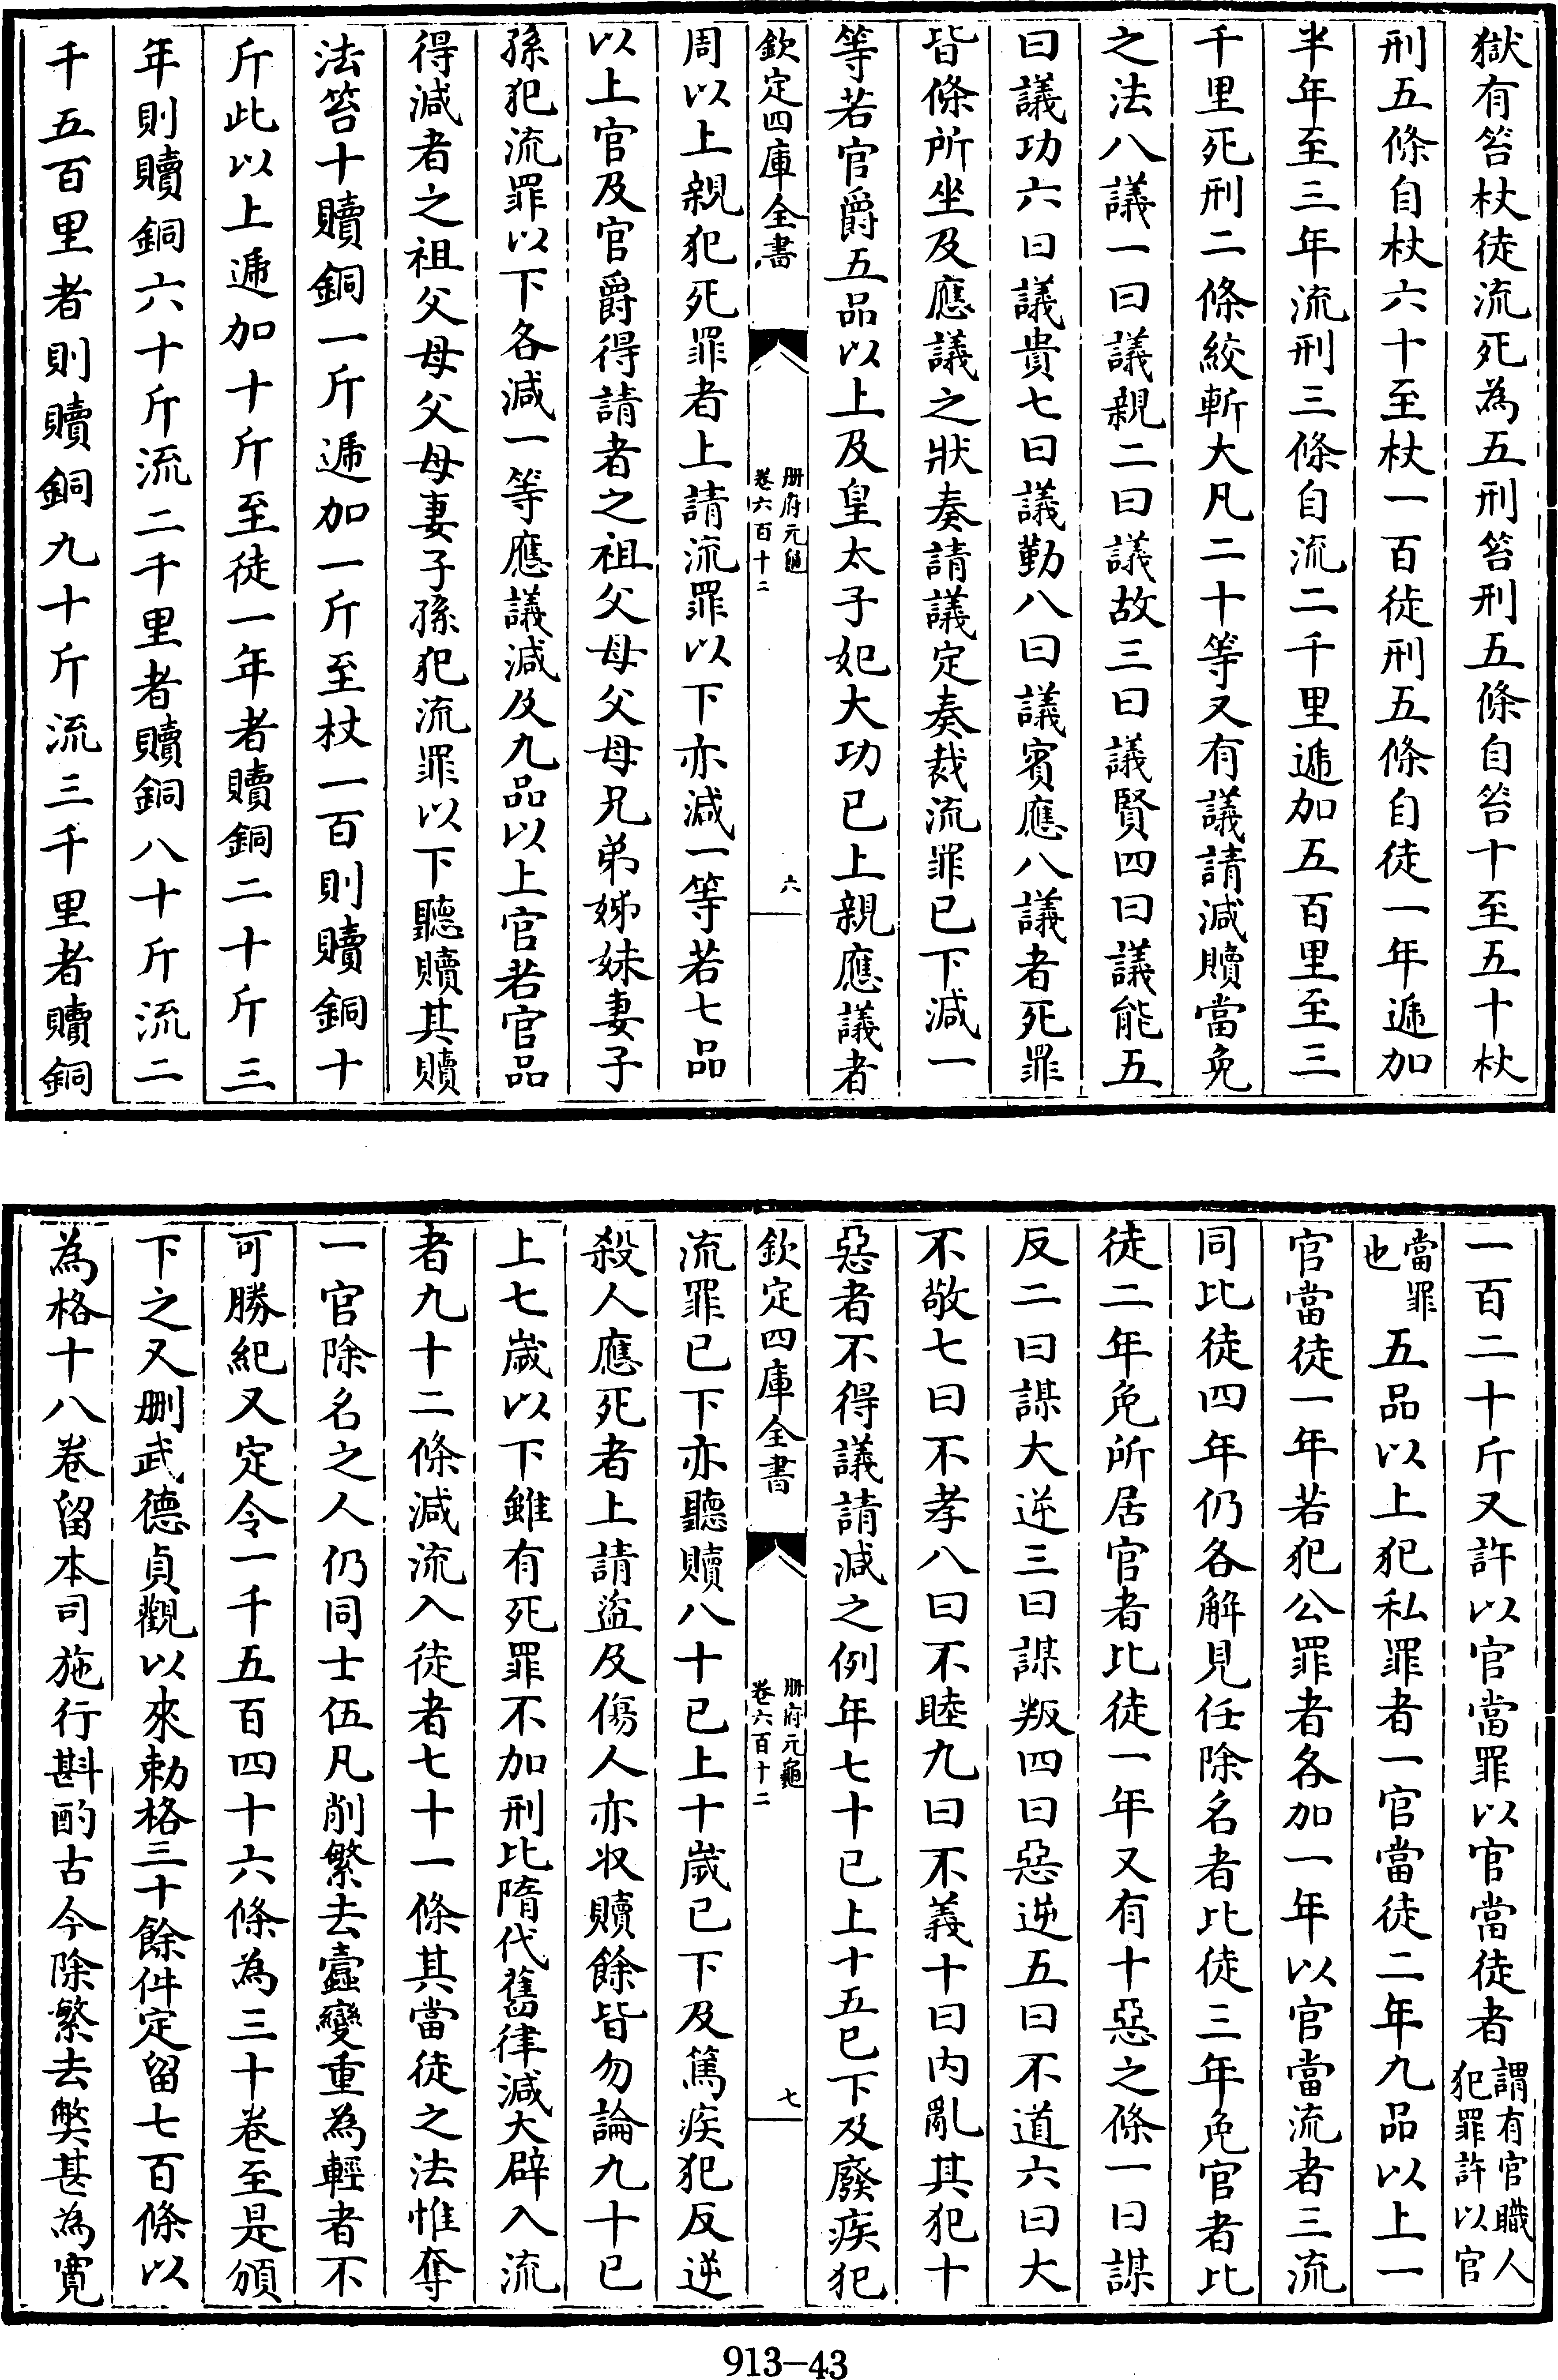 獄有笞杖徒流死為五刑笞刑五條自笞十至五十杖
刑五條自杖六十至杖一百徒刑五條自徒一年遞加
半年至三年流刑三條自流二千里遞加五百里至三
千里死刑二條絞斬大凡二十等又有議請減贖當免
之法八議一曰議親二曰議故三曰議賢四曰議能五
曰議功六曰議貴七曰議勤八曰議賓應八議者死罪
皆條所坐及應議之狀奏請議定奏裁流罪已下減一
等若官爵五品以上及皇太子妃大功已上親應議者
欽定四庫全書
冊府元龜
卷六百十二
六
周以上親犯死罪者上請流罪以下亦減一等若七品
以上官及官爵得請者之祖父母父母兄弟姊妹妻子
孫犯流罪以下各減一等應議減及九品以上官若官品
得減者之祖父母父母妻子孫犯流罪以下聽贖其贖
法笞十贖銅一斤遞加一斤至杖一百則贖銅十
斤此以上遞加十斤至徒一年者贖銅二十斤三
年則贖銅六十斤流二千里者贖銅八十斤流二
千五百里者則贖銅九十斤流三千里者贖銅
一百二十斤又許以官當罪以官當徒者謂有官職人
犯罪許以官
當罪
也五品以上犯私罪者一官當徒二年九品以上一
官當徒一年若犯公罪者各加一年以官當流者三流
同比徒四年仍各解見任除名者比徒三年免官者比
徒二年免所居官者比徒一年又有十惡之條一曰謀
反二曰謀大逆三曰謀叛四曰惡逆五曰不道六曰大
不敬七曰不孝八曰不睦九曰不義十曰內亂其犯十
惡者不得議請減之例年七十已上十五已下及廢疾犯
欽定四庫全書
冊府元龜
卷六百十二
七
流罪已下亦聽贖八十已上十歲已下及篤疾犯反逆
殺人應死者上請盜及傷人亦收贖餘皆勿論九十已
上七歲以下雖有死罪不加刑比隋代舊律減大辟入流
者九十二條減流入徒者七十一條其當徒之法惟奪
一官除名之人仍同士伍凡削繁去蠧變重為輕者不
可勝紀又定令一千五百四十六條為三十卷至是頒
下之又刪武德貞觀以來勅格三十餘件定留七百條以
為格十八卷留本司施行斟酌古今除繁去獘甚為寬
913-43